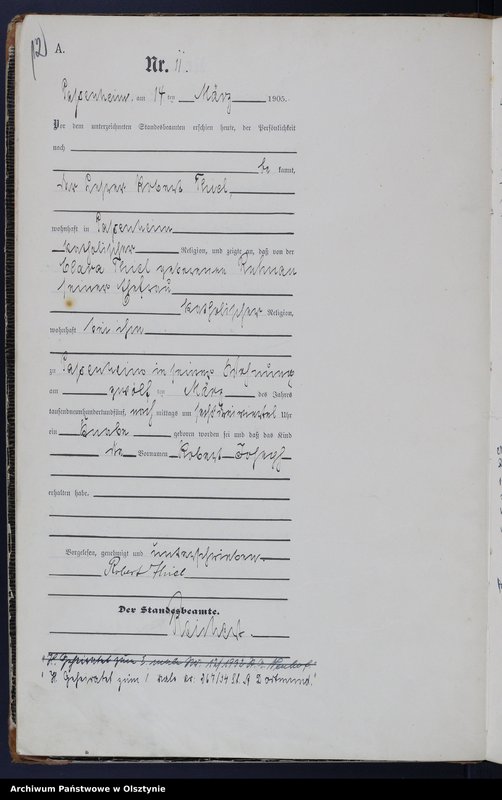 A.
Nr. 11.
am 14 ten März 1905.
Vor dem unterzeichneten Standesbeamten erschien heute, der Persönlichkeit
nach
be kannt,
der Lehrer Robert Thiel,
wohnhaft in
katholischer Religion, und zeigte an, daß von der
Clara Thiel geborenen
seiner Ehefrau
katholischer Religion,
wohnhaft bei ihm
zu in seiner Wohnung
am zwölf ten März des Jahres
tausendneunhundertfünf, nach mittags um Uhr
ein Knabe geboren worden sei und daß das Kind
die Vornamen Robert Joseph
erhalten habe.
Vorgelesen, genehmigt und unterschrieben
Robert Thiel
Der Standesbeamte.
Geheiratet zum 1 male Nr. 267/34 St. A Dortmund.
Archiwum Państwowe w Olsztynie